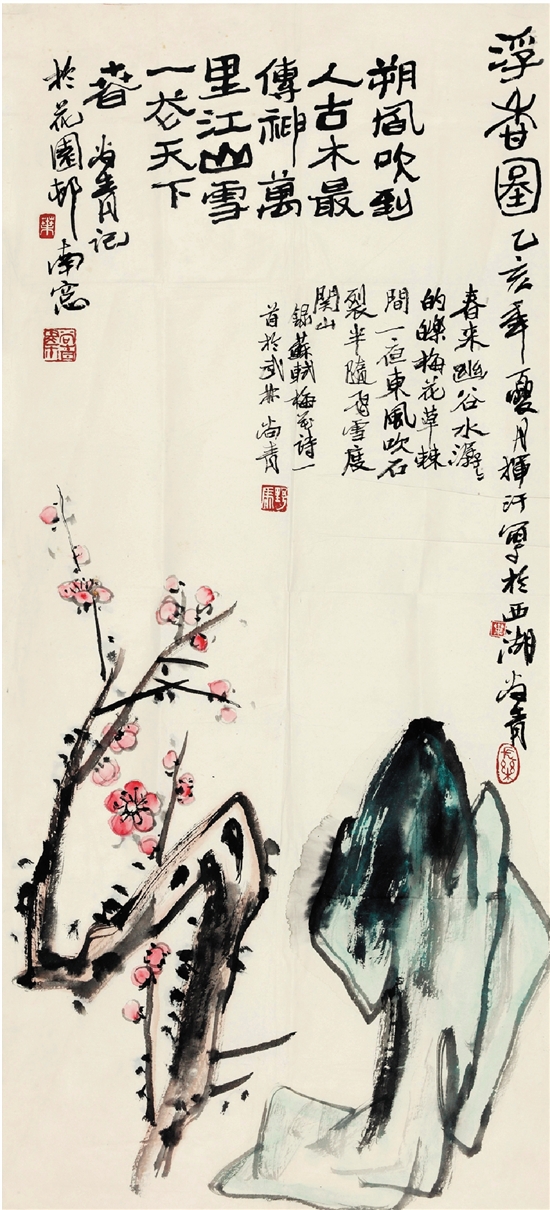 浮香圖
乙亥年夏月揮汗寫於西湖尚青
朔風吹到
人古木最
傳神萬
里江山雪
一花天下
春
尚青記
於花園邨
南窓
春来幽谷水潺々
的皪梅花草棘
間一夜東風吹石
裂半隨飛雪度
関山
録蘇軾梅花诗一
首於武林尚青